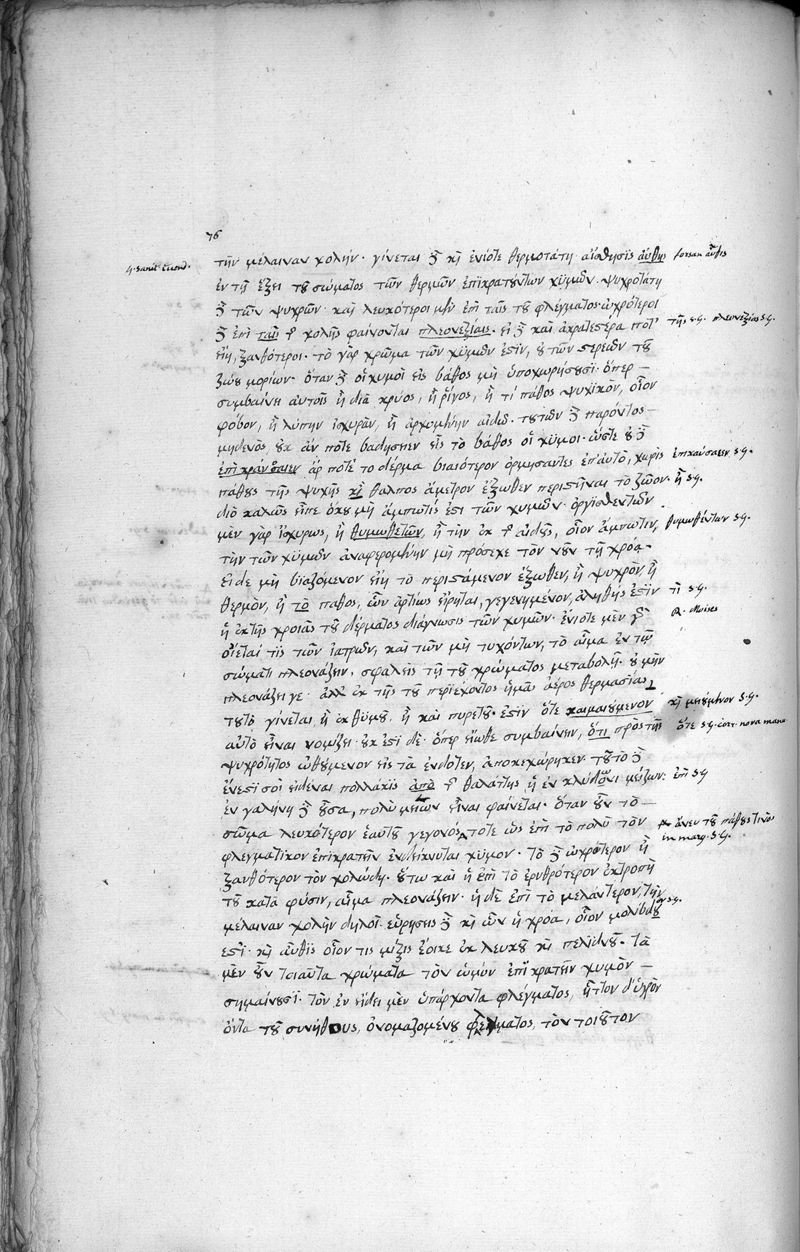 76
4. sanit. tuend.
τὴν μέλαιναν χολήν· γίνεται δὲ καὶ ἐνίοτε θερμοτάτη αἴσθησις αὖθις forsan αὐτοῖς
ἐν τῇ ἕξει τοῦ σώματος τῶν θερμῶν ἐπικρατούντων χυμῶν· ψυχροτάτη
δὲ τῶν ψυχρῶν· καὶ λευκότεροι μὲν ἐπὶ ταῖς τοῦ φλέγματος· ὠχρότεροι
δὲ ἐπὶ ταῖς τῆς χολῆς φαίνονται πλεονεξίαις· εἰ δὲ καὶ ἀκρατεστέρα ποτ' τῆς s.g. πλεονεξίας s.g.
εἴη, ξανθότεροι· τὸ γὰρ χρῶμα τῶν χυμῶν ἐστὶν, οὐ τῶν στερεῶν τοῦ
ζώου μορίων· ὅταν δὲ οἱ χυμοὶ εἰς βάθος μὴ ὑποχωρήσωσι· ὅπερ —
συμβαίνει αὐτοῖς ἢ διὰ κρύος, ἢ ῥῖγος, ἤ τι πάθος ψυχικὸν, οἷον
φόβον, ἢ λύπην ἰσχυρὰν, ἢ ἀρχομένην αἰδῶ· τούτων δὲ παρόντος —
μηδενὸς, οὐκ ἄν ποτε βαδήσειεν εἰς τὸ βάθος οἱ χυμοι· ὥστε οὐδὲ
ἐπικράναιεν ἄρ ποτὲ το δέρμα βιαιότερον ὁρμήσαντες ἐπ' αὐτὸ, χωρὶς ἐπικαύσαιεν s.g.
πάθους τῆς ψυχῆς καὶ θάλπος ἄμετρον ἔξωθεν περιστῆναι τὸ ζῶον· ἢ s.g.
διὸ καλῶς εἶπε ὅκου μὴ ἄμπωτίς ἐστι τῶν χυμῶν· ὀργισθέντων
μὲν γὰρ ἰσχυρῶς, ἢ θυμωθεῖτῶν, ἢ τὴν ἐκ τῆς αἰδοῦς, οἷον ἄμπωτιν, θυμωθέντων s.g.
τὴν τῶν χυμῶν ἀναφερομένην μὴ πρόσεχε τὸν νοῦν τῇ χρόᾳ·
εἰ δὲ μὴ βιαζόμενον εἴη τὸ περιστάμενον ἔξωθεν, ἢ ψυχρὸν, ἢ
θερμὸν, ἢ τὸ παθος, ὧν ἀρτίως εἴρηται, γεγενημένον, ἀληθής ἐστὶν τὶ s.g.
ἡ ἐκ τῆς χροιᾶς τοῦ δέρματος διάγνωσις τῶν χυμῶν· ἐνίοτε μὲν γὰρ
οἴεταί τις τῶν ἰατρῶν, καὶ τῶν μὴ τυχόντων, τὸ αἷμα ἐν τῷ
σώματι πλεονάζειν, σφαλεὶς τῇ τοῦ χρώματος μεταβολῇ· οὐ μὴν
πλεονάζει γε· ἀλλ' ἐκ τῆς τοῦ περιέχοντος ἡμᾶς ἀέρος θερμασίας
τοῦτο γίνεται, ἢ ἐκ θυμοῦ· ἢ καὶ πυρετοῦ· ἐστὶν ὅτε καιμαιούμενον καὶ μειούμενον s.g.
αὐτὸ εἶναι νομίζει· οὐκ ἐστὶ δὲ· ὅπερ εἴωθε συμβαίνειν, ὅτι πρὸς τῆς ὅτε s.g. corr. nova manu
ψυχρότητος ὠθούμενον εἰς τὰ ἔνδοθεν, ἀποκεχώρηκεν· τοῦτο δὲ
ἔνεστί σοι εἰδέναι πολλάκις ἀπὸ τῆς θαλάττης ἢ ἐν κλύδωνι μείζων· ἐπὶ s.g
ἐν γαλήνῃ δὲ οὖσα, πολὺ μείων εἶναι φαίνεται· ὅταν οὖν τὸ —
σῶμα λευκότερον ἑαυτοῦ γεγονός, τότε ὡς ἐπὶ τὸ πολὺ τὸν ἄνευ τοῦ πάθους τινὸς
in marg. s.g.
φλεγματικὸν ἐπικρατεῖν ἐνδείκνυται χυμὸν· τὸ δὲ ὠχρότερον ἢ
ξανθότερον τὸν χολώδη· οὕτω καὶ ἡ ἐπὶ τὸ ἐρυθρότερον ἐκτροπὴ
τοῦ κατὰ φύσιν, αἷμα πλεονάζειν· ἡ δὲ ἐπὶ τὸ μελάντερον, τὴν
μέλαιναν χολὴν δηλοῖ· εὑρήσεις δὲ καὶ ὧν ἡ χρόα, οἷον μολίβδου s.g.
ἐστί· καὶ αὖθις οἷον τις μίξις ἔοικε ἐκ λευκοῦ καὶ πελιδνοῦ· τὰ
μὲν οὖν τοιαῦτα χρώματα τὸν ὠμὸν ἐπικρατεῖν χυμὸν —
σημαίνουσι· τὸν ἐν εἴδει μὲν ὑπάρχοντα φλέγματος, ἧττον δ' ὑγρὸν
ὄντα τοῦ συνήθους, ὀνομαζομένου φλέγματος, τὸν τοιοῦτον